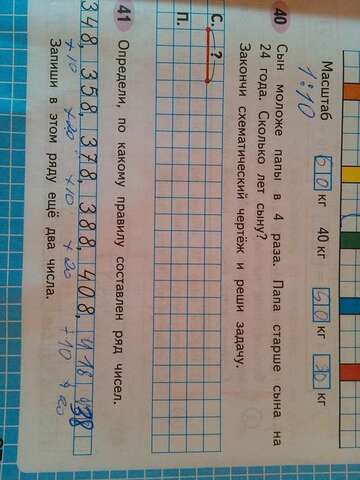 Масштаб
1:10
60 кг 40 кг 60 кг 30 кг
40 Сын моложе папы в 4 раза. Папа старше сына на
24 года. Сколько лет сыну?
Закончи схематический чертёж и реши задачу.
С. ?
П.
41 Определи, по какому правилу составлен ряд чисел.
348, 358, 378, 388, 408, 418 438
+10 +20 +10 +20 +10 +20
Запиши в этом ряду ещё два числа.